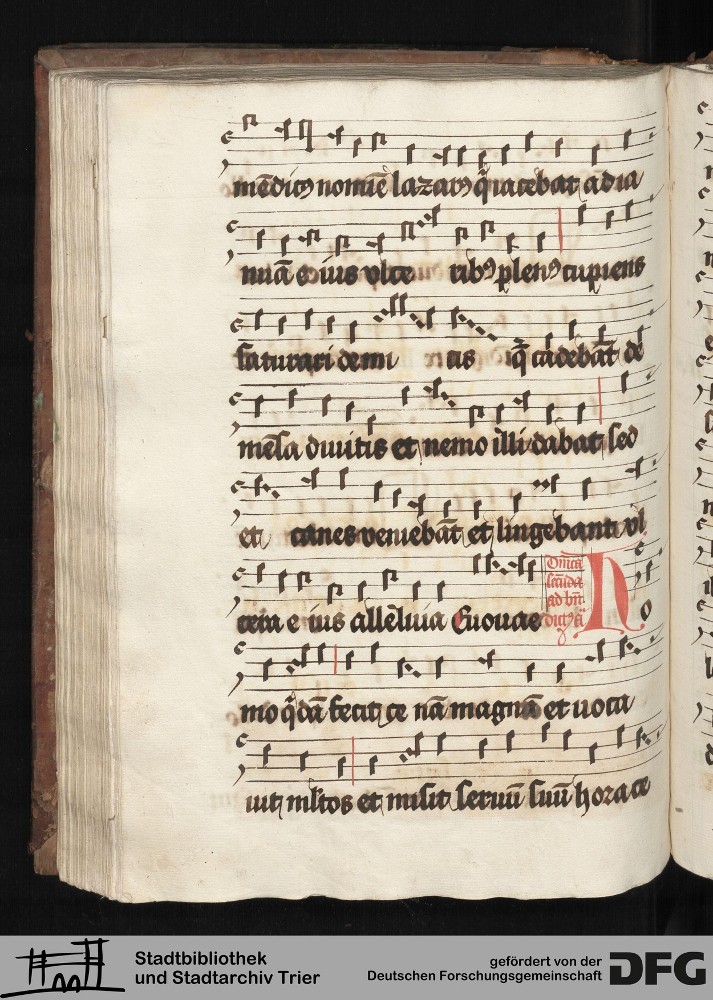 mēdicꝰ nomiē lazarꝰ q̄ iacebat ad ia
nuā e ius vlce ribꝰ plenꝰ cupiens
saturari de mi cis q̄ cadebāt de
mēsa diuitis et nemo illi dabat sed
et canes veniebāt et lingebant vl
cera e ius allēluia Euouae
Dnīca
scēda
ad bn̄
Ho
mo q̄dā fecit ce nā magnā et uoca
uit ml̄tos et misit seruū suū hora ce
Stadtbibliothek
und Stadtarchiv Trier
gefördert von der
Deutschen Forschungsgemeinschaft
DFG